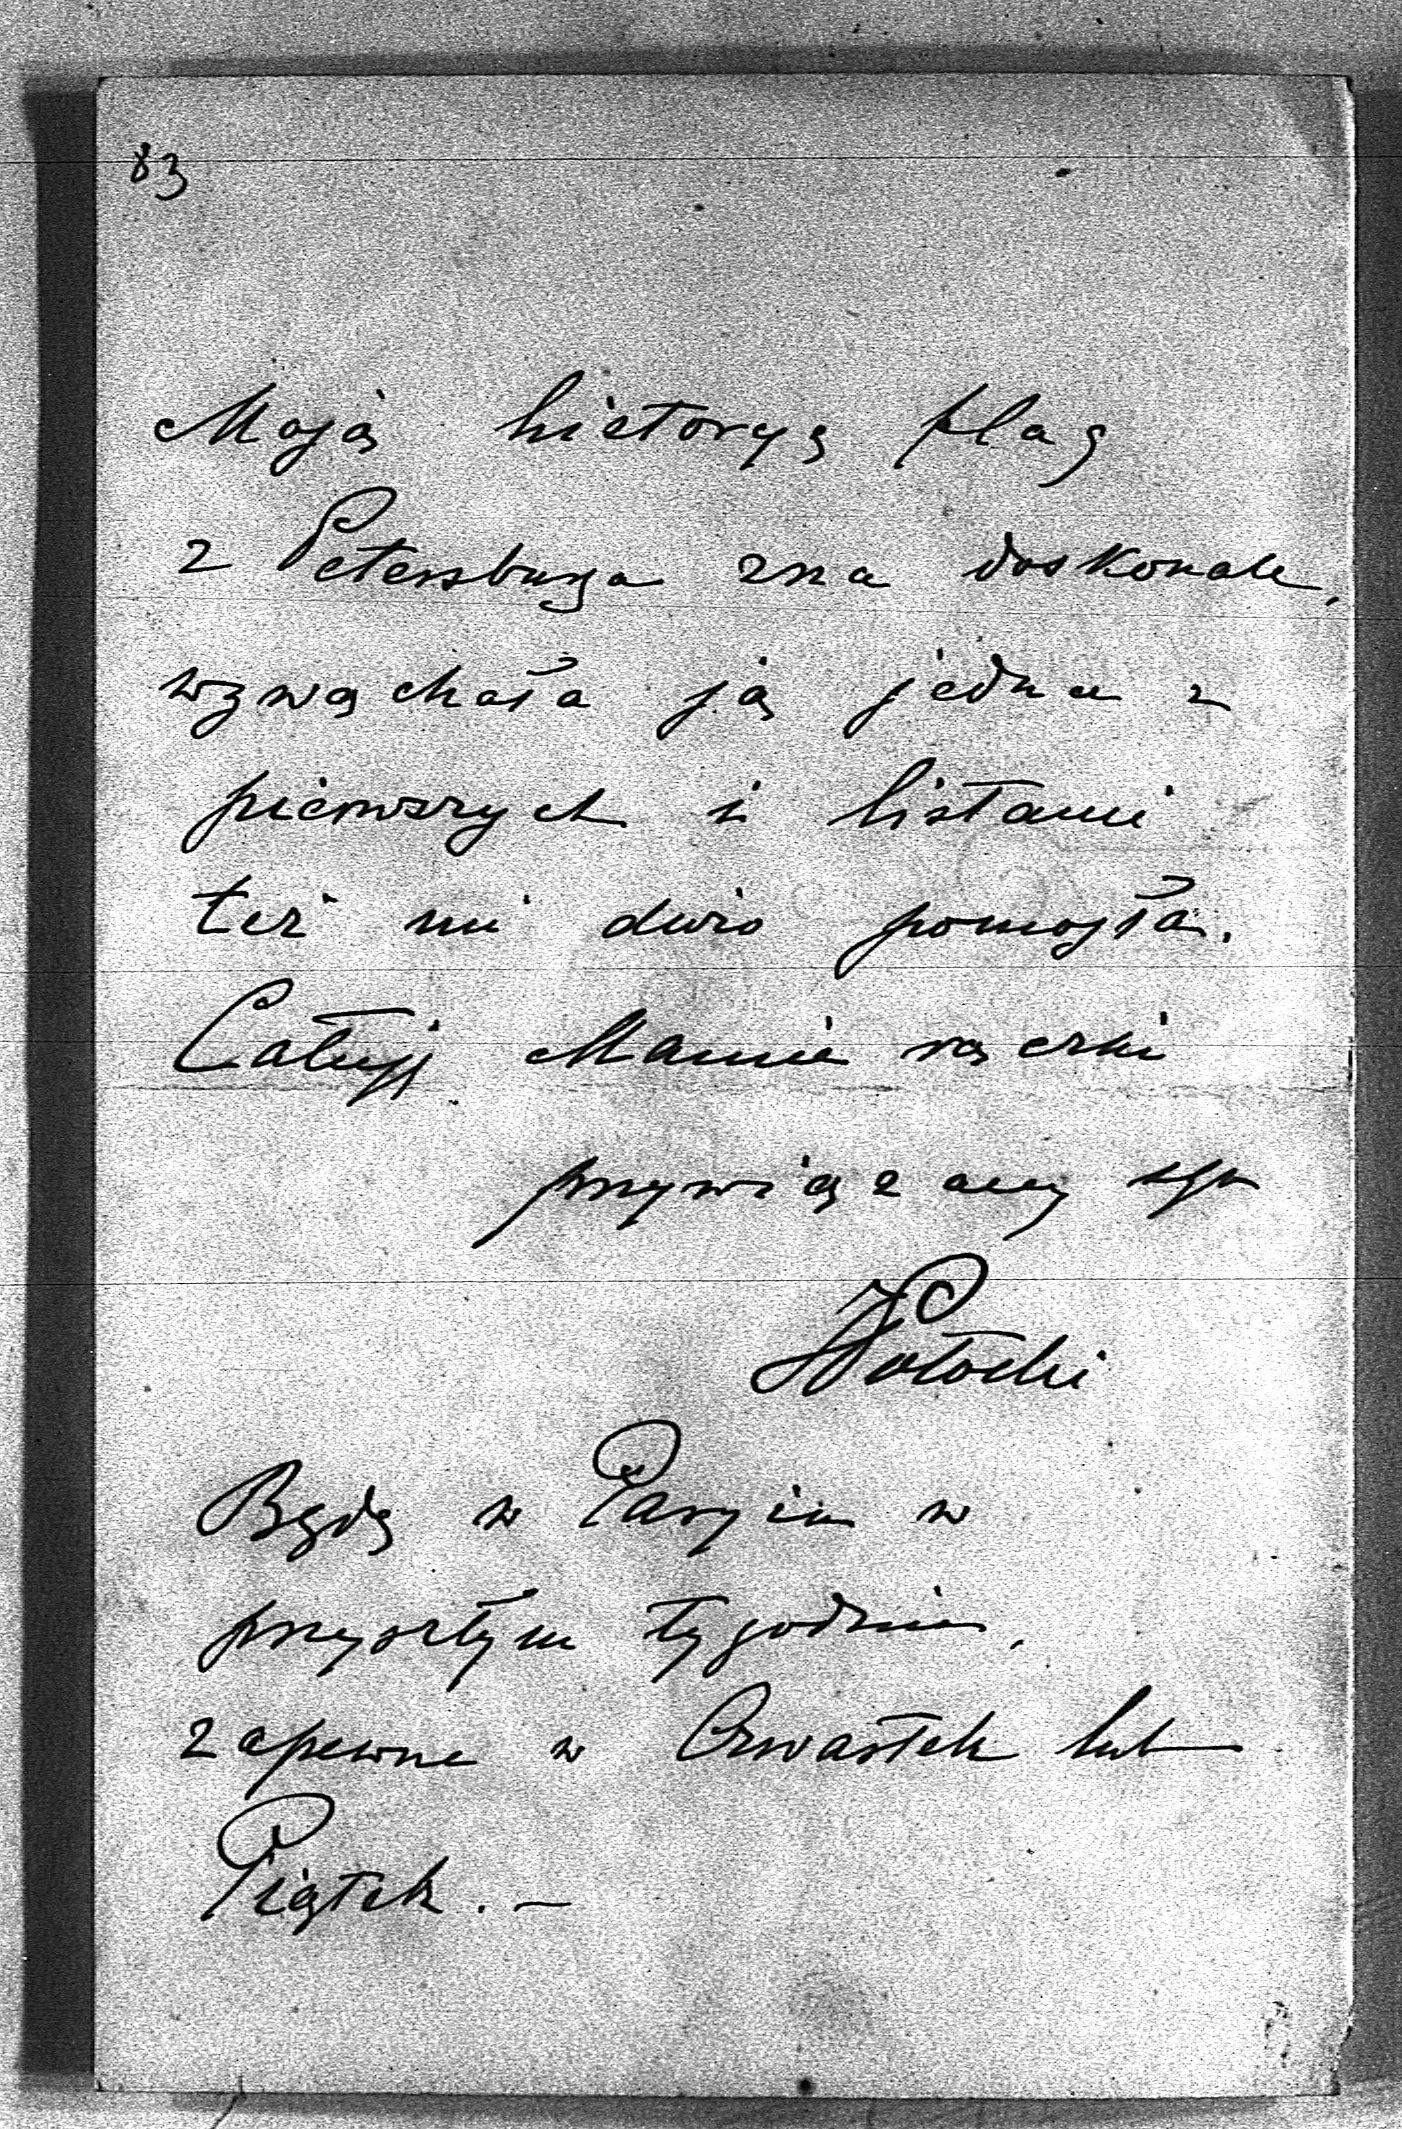 83
Moją historyę flag
z Petersburga zna doskonale,
wzwąchała ją jedna z
pierwszych i listami
też mi dużo pomogła.
Całuję Mamie rączki
przywiązany syn
JPotocki
Będę w Paryżu w
przyszłym tygodniu,
zapewne w Czwartek lub
Piątek. —